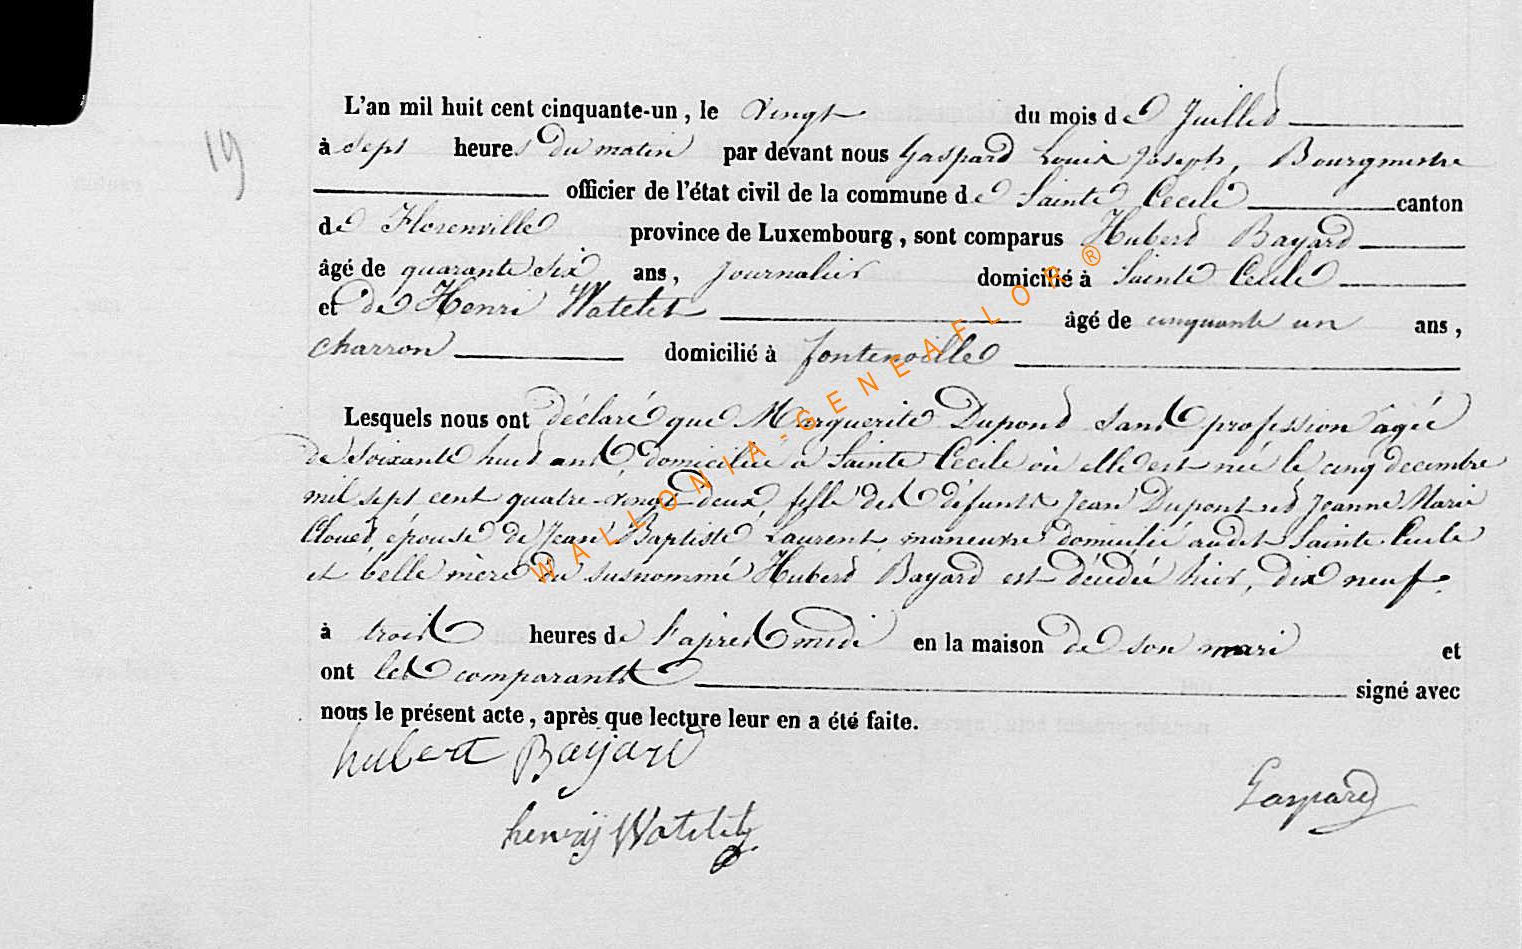 19
L'an mil huit cent cinquante-un, le vingt du mois de Juillet
à sept heures du matin par devant nous Gaspard Louis Joseph, Bourgmestre
officier de l'état civil de la commune de Sainte Cecile canton
de Florenville province de Luxembourg, sont comparus Hubert Bayard
âgé de quarante six ans, Journalier domicilié à Sainte Cecile
et de Henri Watelet âgé de cinquante un ans,
charron domicilié à fontenoille
Lesquels nous ont déclaré que Marguerite Dupond sans profession agée
de soixante huit ans, domiciliée à Sainte Cecile où elle est née le cinq decembre
mil sept cent quatre-vingt deux, fille des défunts Jean Dupont et Jeanne Marie
Clouet, épouse de Jean Baptiste Laurent, maneuvre domicilié audit Sainte Cecile
et belle mère du susnommé Hubert Bayard est décédée hier, dix neuf,
à trois heures de l'après midi en la maison de son mari et
ont les comparants signé avec
nous le présent acte, après que lecture leur en a été faite.
hubert Bayard
Gaspard
henrÿ Watelet
WALLONIA-GENEAFLOR®